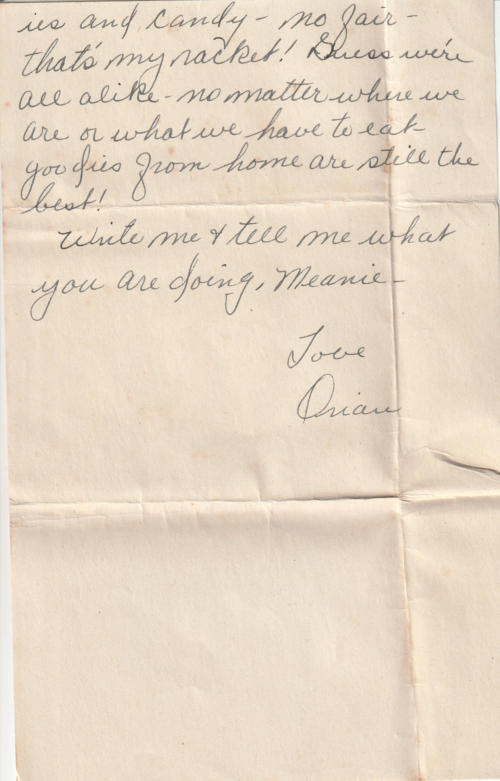 ies and candy - no fair -
that's my racket! Guess we're
all alike - no matter where we
are or what we have to eat
goodies from home are still the
best!
Write me & tell me what
you are doing, Meanie -
Love